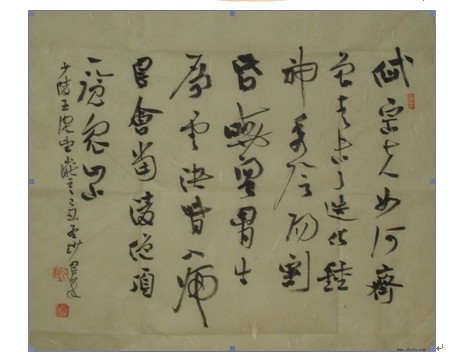 岱宗夫如何齊
魯青未了造化鍾
神秀陰陽割
昏曉盪胸生
層雲決眥入歸
鳥會當凌絕頂
一覽眾山小
少陵五 望嶽